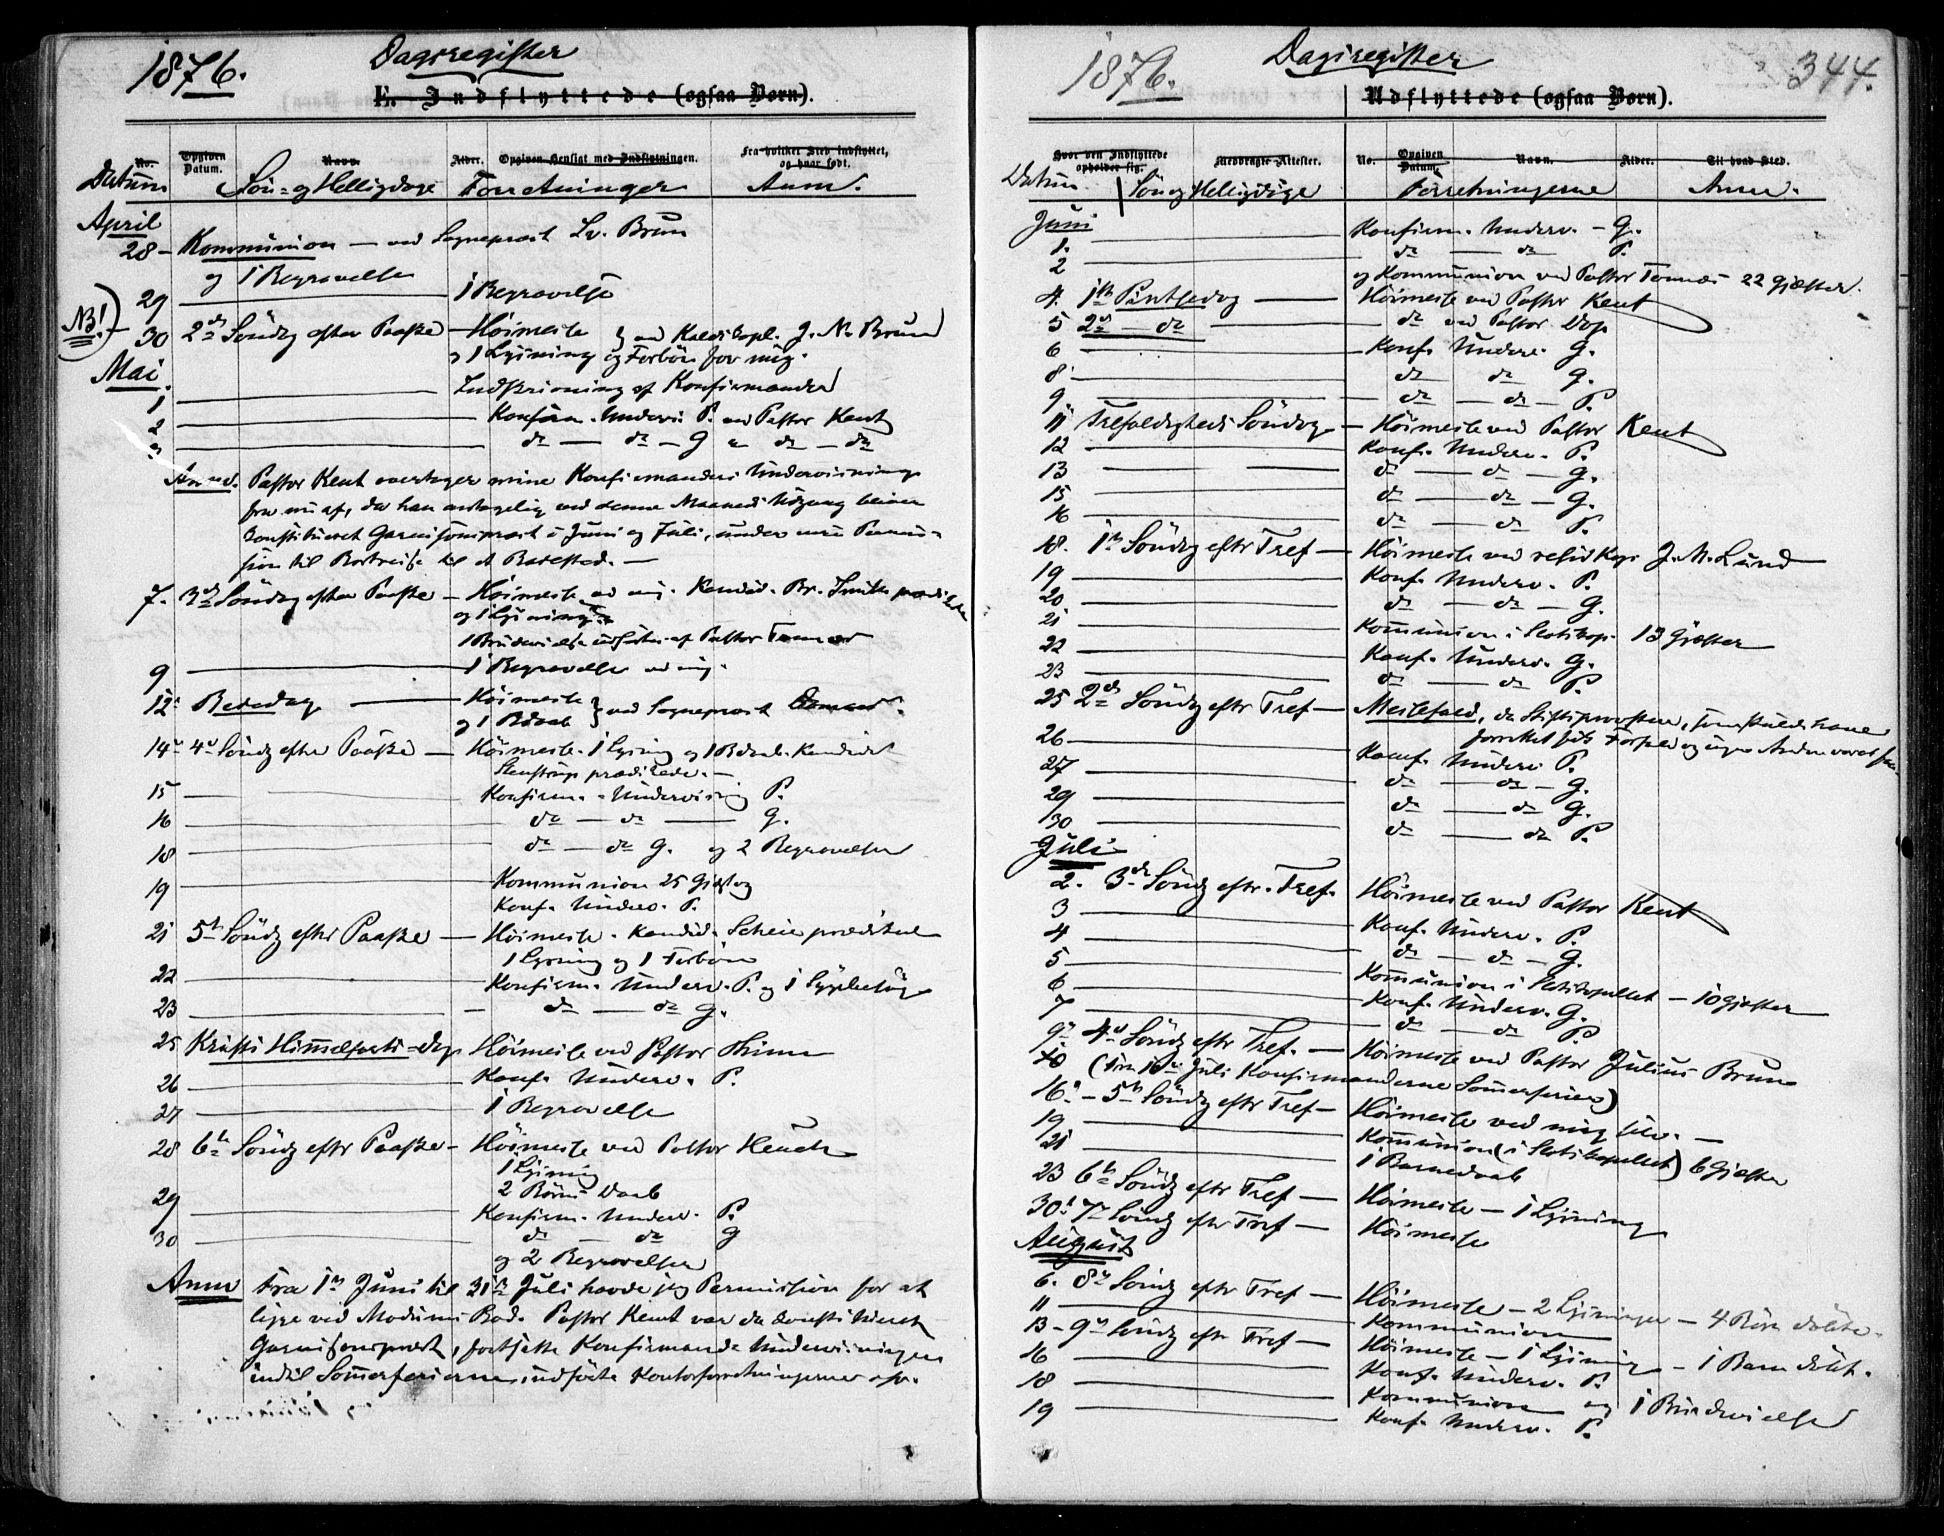 1876.
Dagsregister
E. Indflyttede (ogsaa Børn).
No.
Opgiven Datum.
Navn
Alder.
Opgiven Hensigt med Indflytningen.
Fra hvilket Sted indflyttet, og hvor født.
Datum
Søn- og Helligdage
Forretninger
Anm.
April
28 - Kommunion - ved Sognepræst Sv. Brun
og 1 Begravelse
29 1 Begravelse
NB!
30 2den Søndg efter Paaske - Höimesse } ved J. N. Brun
og 1 Lysning og Forbön for mig.
Mai
1 Indskrivning af Konfirmander
2 Konfirm. Underv. P. ved Pastor Kent
3 do - do - G " do - do
Anm. Pastor Kent overtager mine Konfirmanders Undervisning
fra nu af, da han antagelig ved denne Maaneds Udgang bliver
konstitueret Garnisonspræst i Juni og Juli, under min Permis-
sion til Bortreise til et Badested. -
7. 3die Søndag efter Paaske - Höimesse ved mig. Kandid. Br. Smith
og 1 Lysning
1 Brudevielse udfört af Pastor
9 1 Begravelse ved mig.
12 Bededag - Höimesse } ved Sognepræst
og 1 Bdaab
14 4de Søndg efter Paaske - Höimesse. 1 Lysing og 1 Bdaab. Kandidat
Stenstrup prædikede. -
15 Konfirm. - Undervisnig P.
16 do - do - G.
18 do - do G. og 2 Begravelser
19 Kommunion 25 Gjæst og
Konf. Underv. P.
21 5te Søndg eftr Paaske - Höimesse. Kandid. Scheie prædikede
1 Lysning og 1 Forbön
22 Konfirm. Underv. P. og 1 Sygebesög
23 do - do G.
25 Kristi Himmelfarts-dag Höimesse ved Pastor
26 Konf. Underv. P.
27 1 Begravelse
28 6te Søndg eftr Paaske - Höimesse ved Pastor Heuch
1 Lysning
2 Börns Daab
29 Konfirm. Underv. P.
30 do - do G
og 2 Begravelser
Anm Fra 1ste Juni til 31te Juli havde jeg Permission for at
ligge ved Modums Bad. Pastor Kent var da konstitueret
Garnisonspræst, fortsatte Konfirmande Undervisningen
indtil Somerferierne, indförte Kontorforretningerne
1876.
Dagsregister
344.
Udflyttede (ogsaa Børn).
Hvor den Indflyttede opholder sig.
Medbragte Attester.
No.
Opgiven Datum.
Navn.
Alder.
Til hvad Sted.
Datum
Søn og Helligdage
Forretningerne
Anm.
Juni
1. Konfirm. Underv. - G.
2 do - do P.
og Kommunion ved Pastor 22 Gjæster.
4. 1ste Pintsedag - Höimesse ved Pastor Kent
5 2den - do - do ved Pastor Dop
6 Konf. Underv. G.
8 do do G.
9. do - do - P.
11 Trefoldigheds Söndag - Höimesse ved Pastor Kent
12 Konf. Underv. P.
13 do - do - G.
15 do - do - G.
16 do - do P.
18. 1ste Söndg eftr Tref - Höimesse ved resid Kap. J. M. Lund
19 Konf. Underv. P.
20 do - do - G.
21 Kommunion i Slotskap. 13 Gjæster
22 Konf. Underv. G.
23 do - do P.
25 2den Söndg eftr Tref - Messefald, da Stiftsprovsten, som skulde have
forrettet fik Forfald og ingen Anden
26 Konf. Underv. P.
27 do - do - G.
29 do - do G.
30 do - do P.
Juli
2. 3die Söndg eftr. Tref. Höimesse ved Pastor Kent
3 Konf. Underv. P.
4 do - do - G.
5 Kommunion i Slotskapellet - 10 Gjæster
6 Konf. Underv. G.
7 do - do P.
9. 4de Söndg eftr Tref. - Höimesse ved Pastor Julius Brun
10 (Fra 10de Juli Konfirmanderne Somerferier)
16. - 5te Söndg eftr Tref - Höimesse ved mig selv. -
19 Kommunion (i Slotskapellet) 6 Gjæster
21 1 Barnedaab
23 6te Söndg eftr Tref - Höimesse - 1 Lysning
30. 7de Söndg eftr Tref - Höimesse
August
6. 8de Söndg eftr Tref - Höimesse - 2 Lysninger - 4 Börn döbte.
11 Kommunion
13 - 9de Söndg eftr Tref - Höimesse - 1 Lysning - 1 Barn döbt.
16 Konf. Underv. P.
18 Kommunion og 1 Brudevielse
19 Konf. Underv. P.